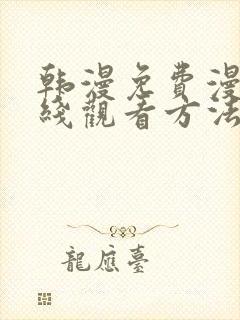 韩漫免費漫
綫觀看方法
龍應臺